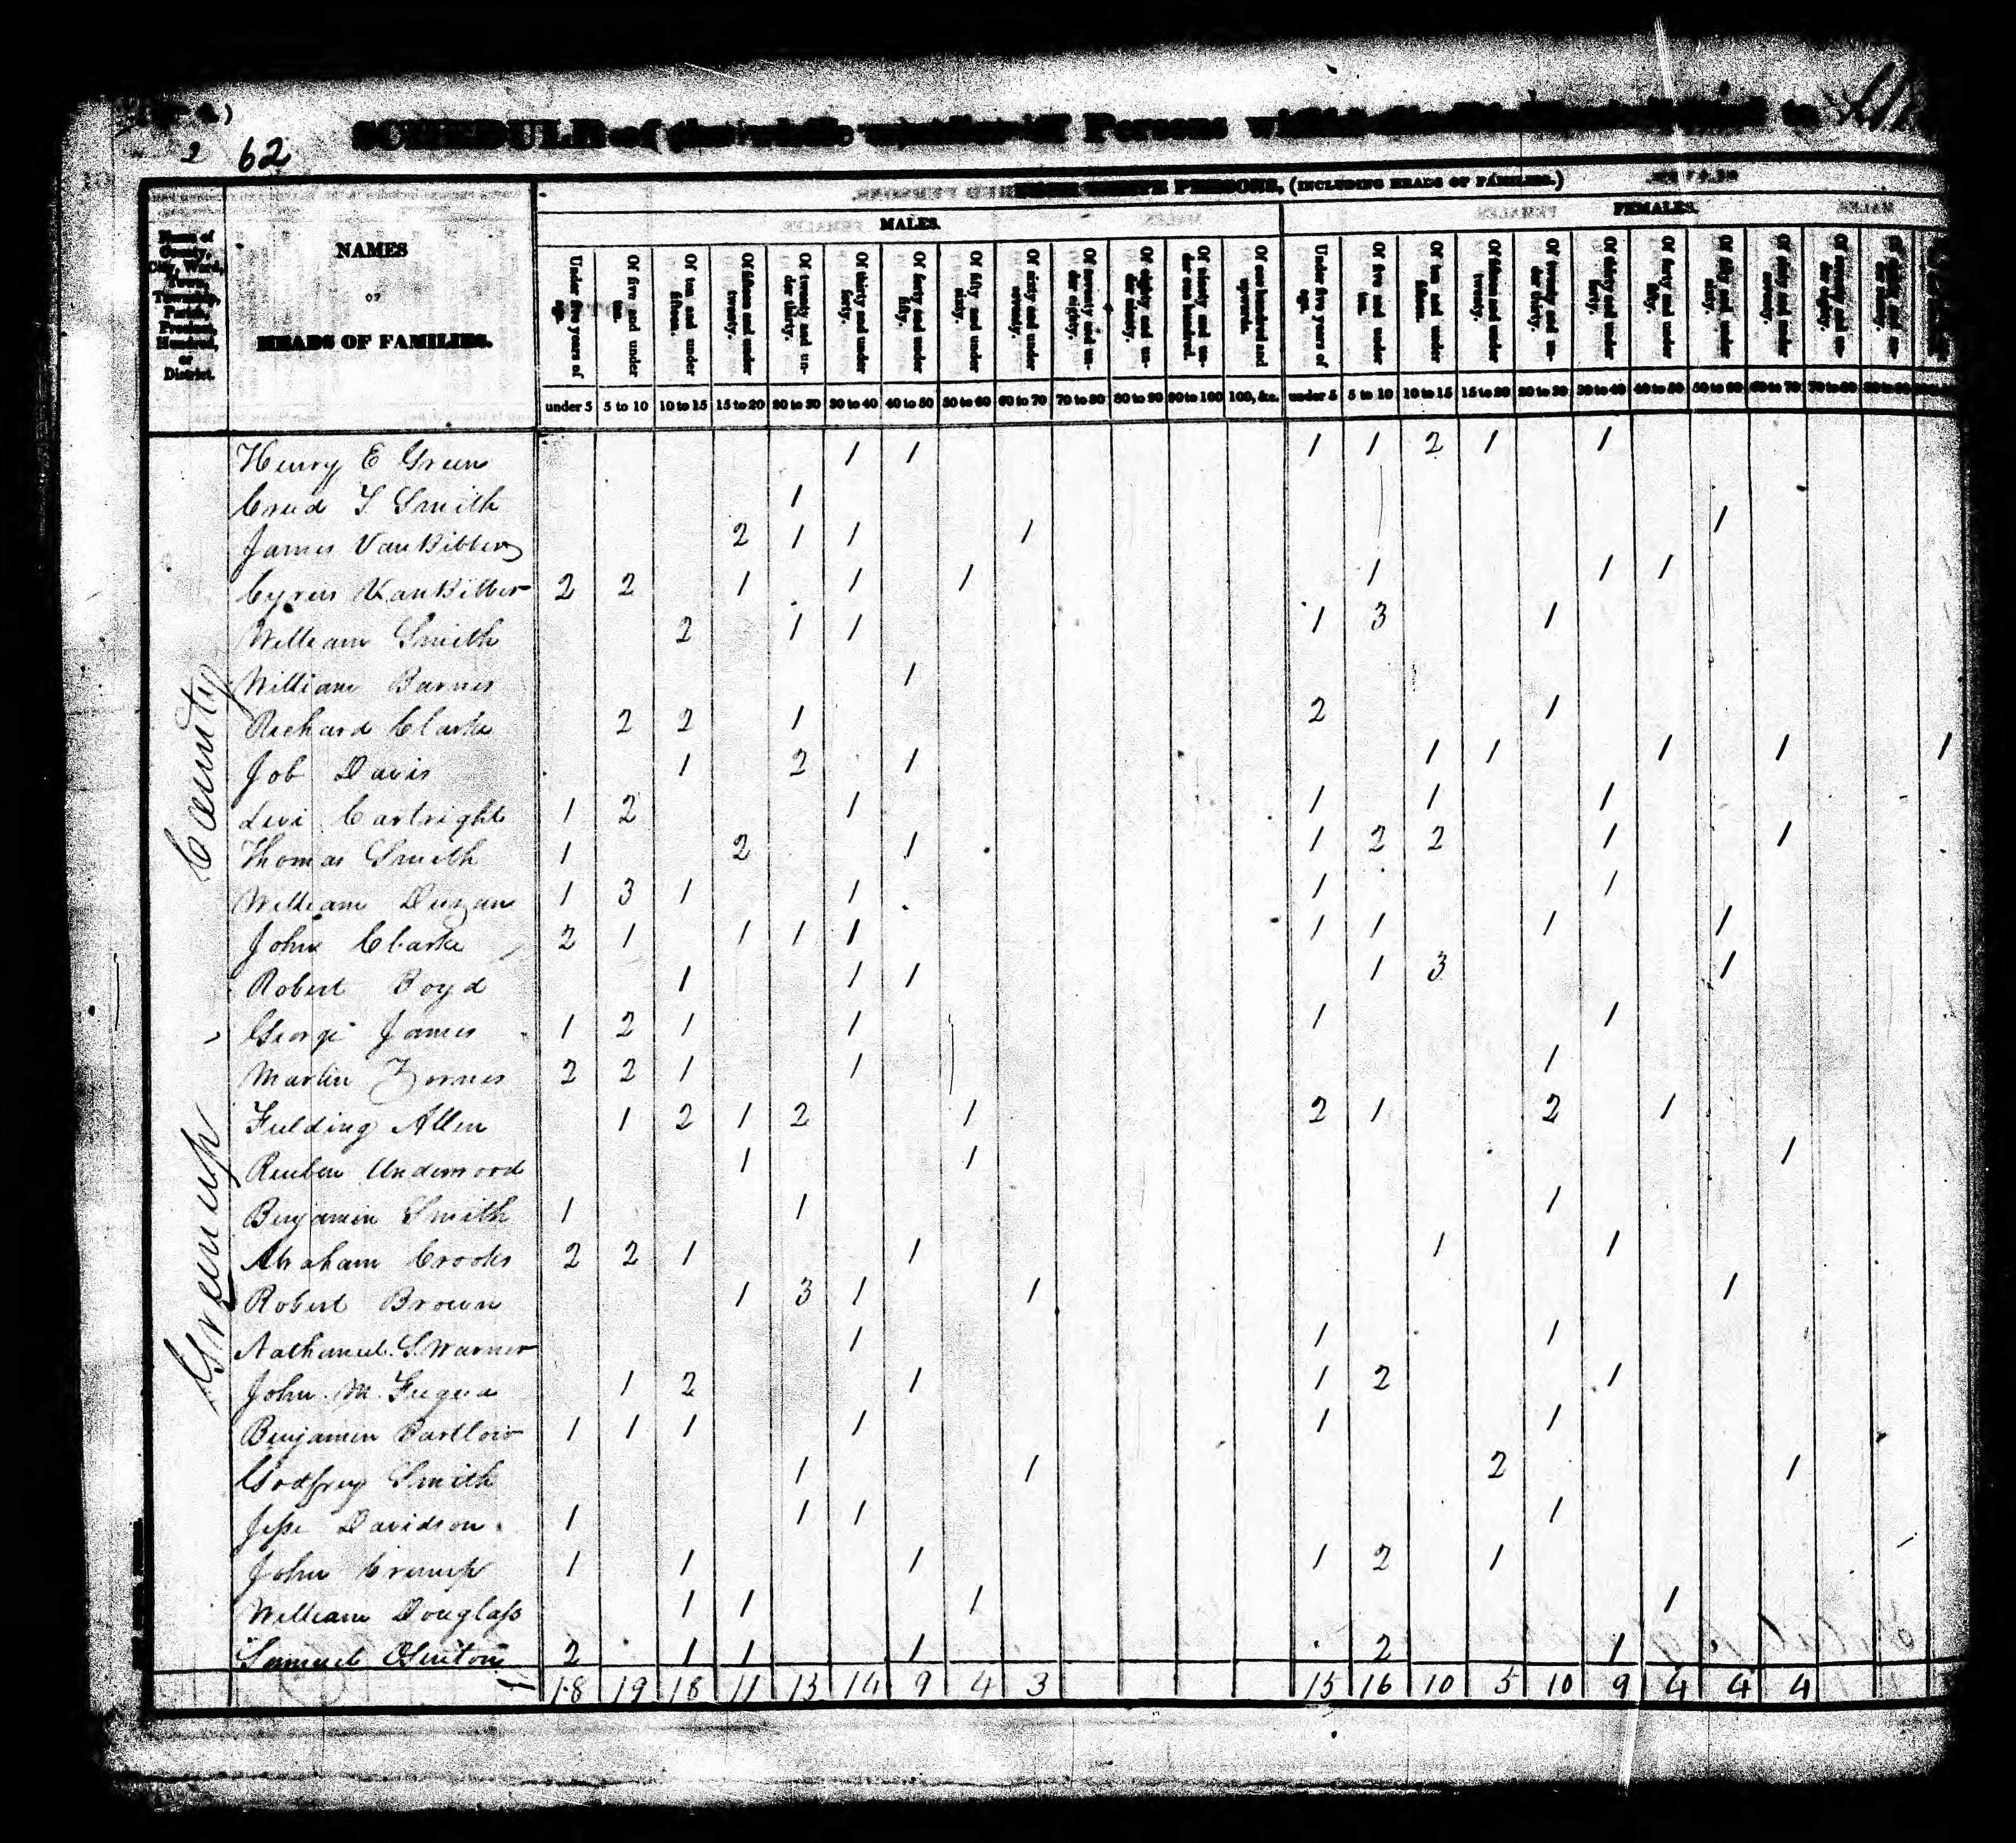 2 62
SCHEDULE of the whole number of Persons within
FREE WHITE PERSONS, (INCLUDING HEADS OF FAMILIES.)
MALES. FEMALES.
Name of County, City, Ward, Town, Township, Parish, Precinct, Hundred, or District.
NAMES
OF
HEADS OF FAMILIES.
Under five years of age. Of five and under ten. Of ten and under fifteen. Of fifteen and under twenty. Of twenty and under thirty. Of thirty and under forty. Of forty and under fifty. Of fifty and under sixty. Of sixty and under seventy. Of seventy and under eighty. Of eighty and under ninety. Of ninety and under one hundred. Of one hundred and upwards. Under five years of age. Of five and under ten. Of ten and under fifteen. Of fifteen and under twenty. Of twenty and under thirty. Of thirty and under forty. Of forty and under fifty. Of fifty and under sixty. Of sixty and under seventy. Of seventy and under eighty.
under 5 5 to 10 10 to 15 15 to 20 20 to 30 30 to 40 40 to 50 50 to 60 60 to 70 70 to 80 80 to 90 90 to 100 100, &c. under 5 5 to 10 10 to 15 15 to 20 20 to 30 30 to 40 40 to 50 50 to 60 60 to 70 70 to 80 80 to 90
Greenup County
Henry E Green 1 1 1 1 2 1 1
T. Smith 1
James VanBibber 2 1 1 1 1
Cyrus VanBibber 2 2 1 1 1 1 1 1
William Smith 2 1 1 1 3 1
William Barnes 1
Richard Clarke 2 2 1 2 1
Job Davis 1 2 1 1 1 1 1 1
Levi Cartright 1 2 1 1 1 1
Thomas Smith 1 2 1 1 2 2 1 1
William Duzan 1 3 1 1 1 1
John Clarke 2 1 1 1 1 1 1 1 1
Robert Boyd 1 1 1 1 3 1
George James 1 2 1 1 1 1
Martin Zornes 2 2 1 1 1
Fielding Allen 1 2 1 2 1 2 1 2 1
Reuben Underwood 1 1 1
Benjamin Smith 1 1 1
Abraham Crooks 2 2 1 1 1 1
Robert Brown 1 3 1 1 1
Nathaniel S. Warner 1 1 1
John M. Fuqua 1 2 1 1 2 1
Benjamin Bartlow 1 1 1 1 1 1
Godfrey Smith 1 1 2 1
Jesse Davidson 1 1 1 1
John Crump 1 1 1 1 2 1
William Douglass 1 1 1 1
Samuel 2 1 1 1 2 1
18 19 18 11 13 14 9 4 3 15 16 10 5 10 9 4 4 4